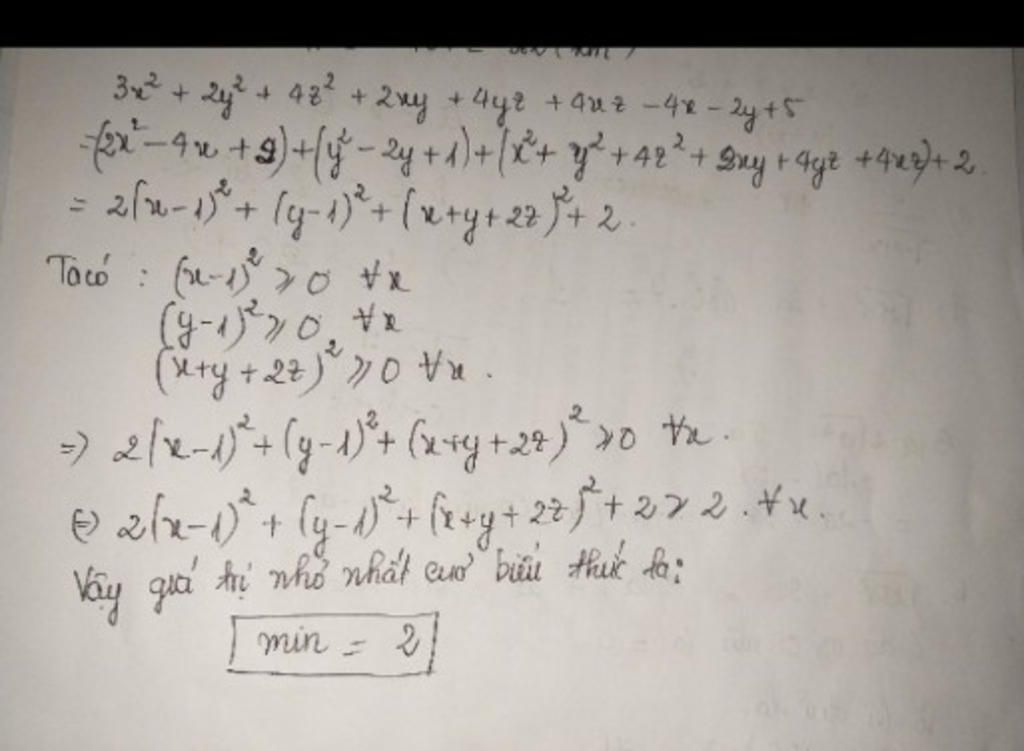 3x² + 2y² + 4z² + 2xy + 4yz + 4xz - 4x - 2y + 5
= (2x² - 4x + 2) + (y² - 2y + 1) + (x² + y² + 4z² + 2xy + 4yz + 4xz) + 2.
= 2(x-1)² + (y-1)² + (x+y+2z)² + 2.
Ta có : (x-1)² ⩾ 0 ∀x
(y-1)² ⩾ 0 ∀x
(x+y+2z)² ⩾ 0 ∀x.
=) 2(x-1)² + (y-1)² + (x+y+2z)² ⩾ 0 ∀x.
(=) 2(x-1)² + (y-1)² + (x+y+2z)² + 2 ⩾ 2. ∀x.
Vậy giá trị nhỏ nhất cuả biểu thức là:
min = 2